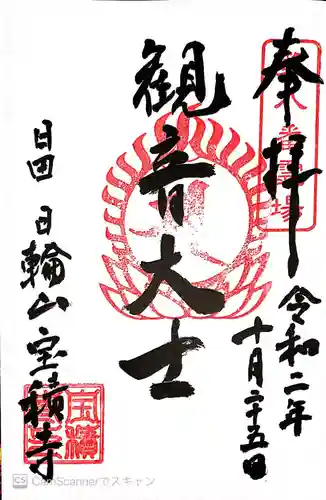 奉拝
令和二年
十月二十五日
観音大士
昌田 日輪山 宝積寺
CS CamScannerでスキャン